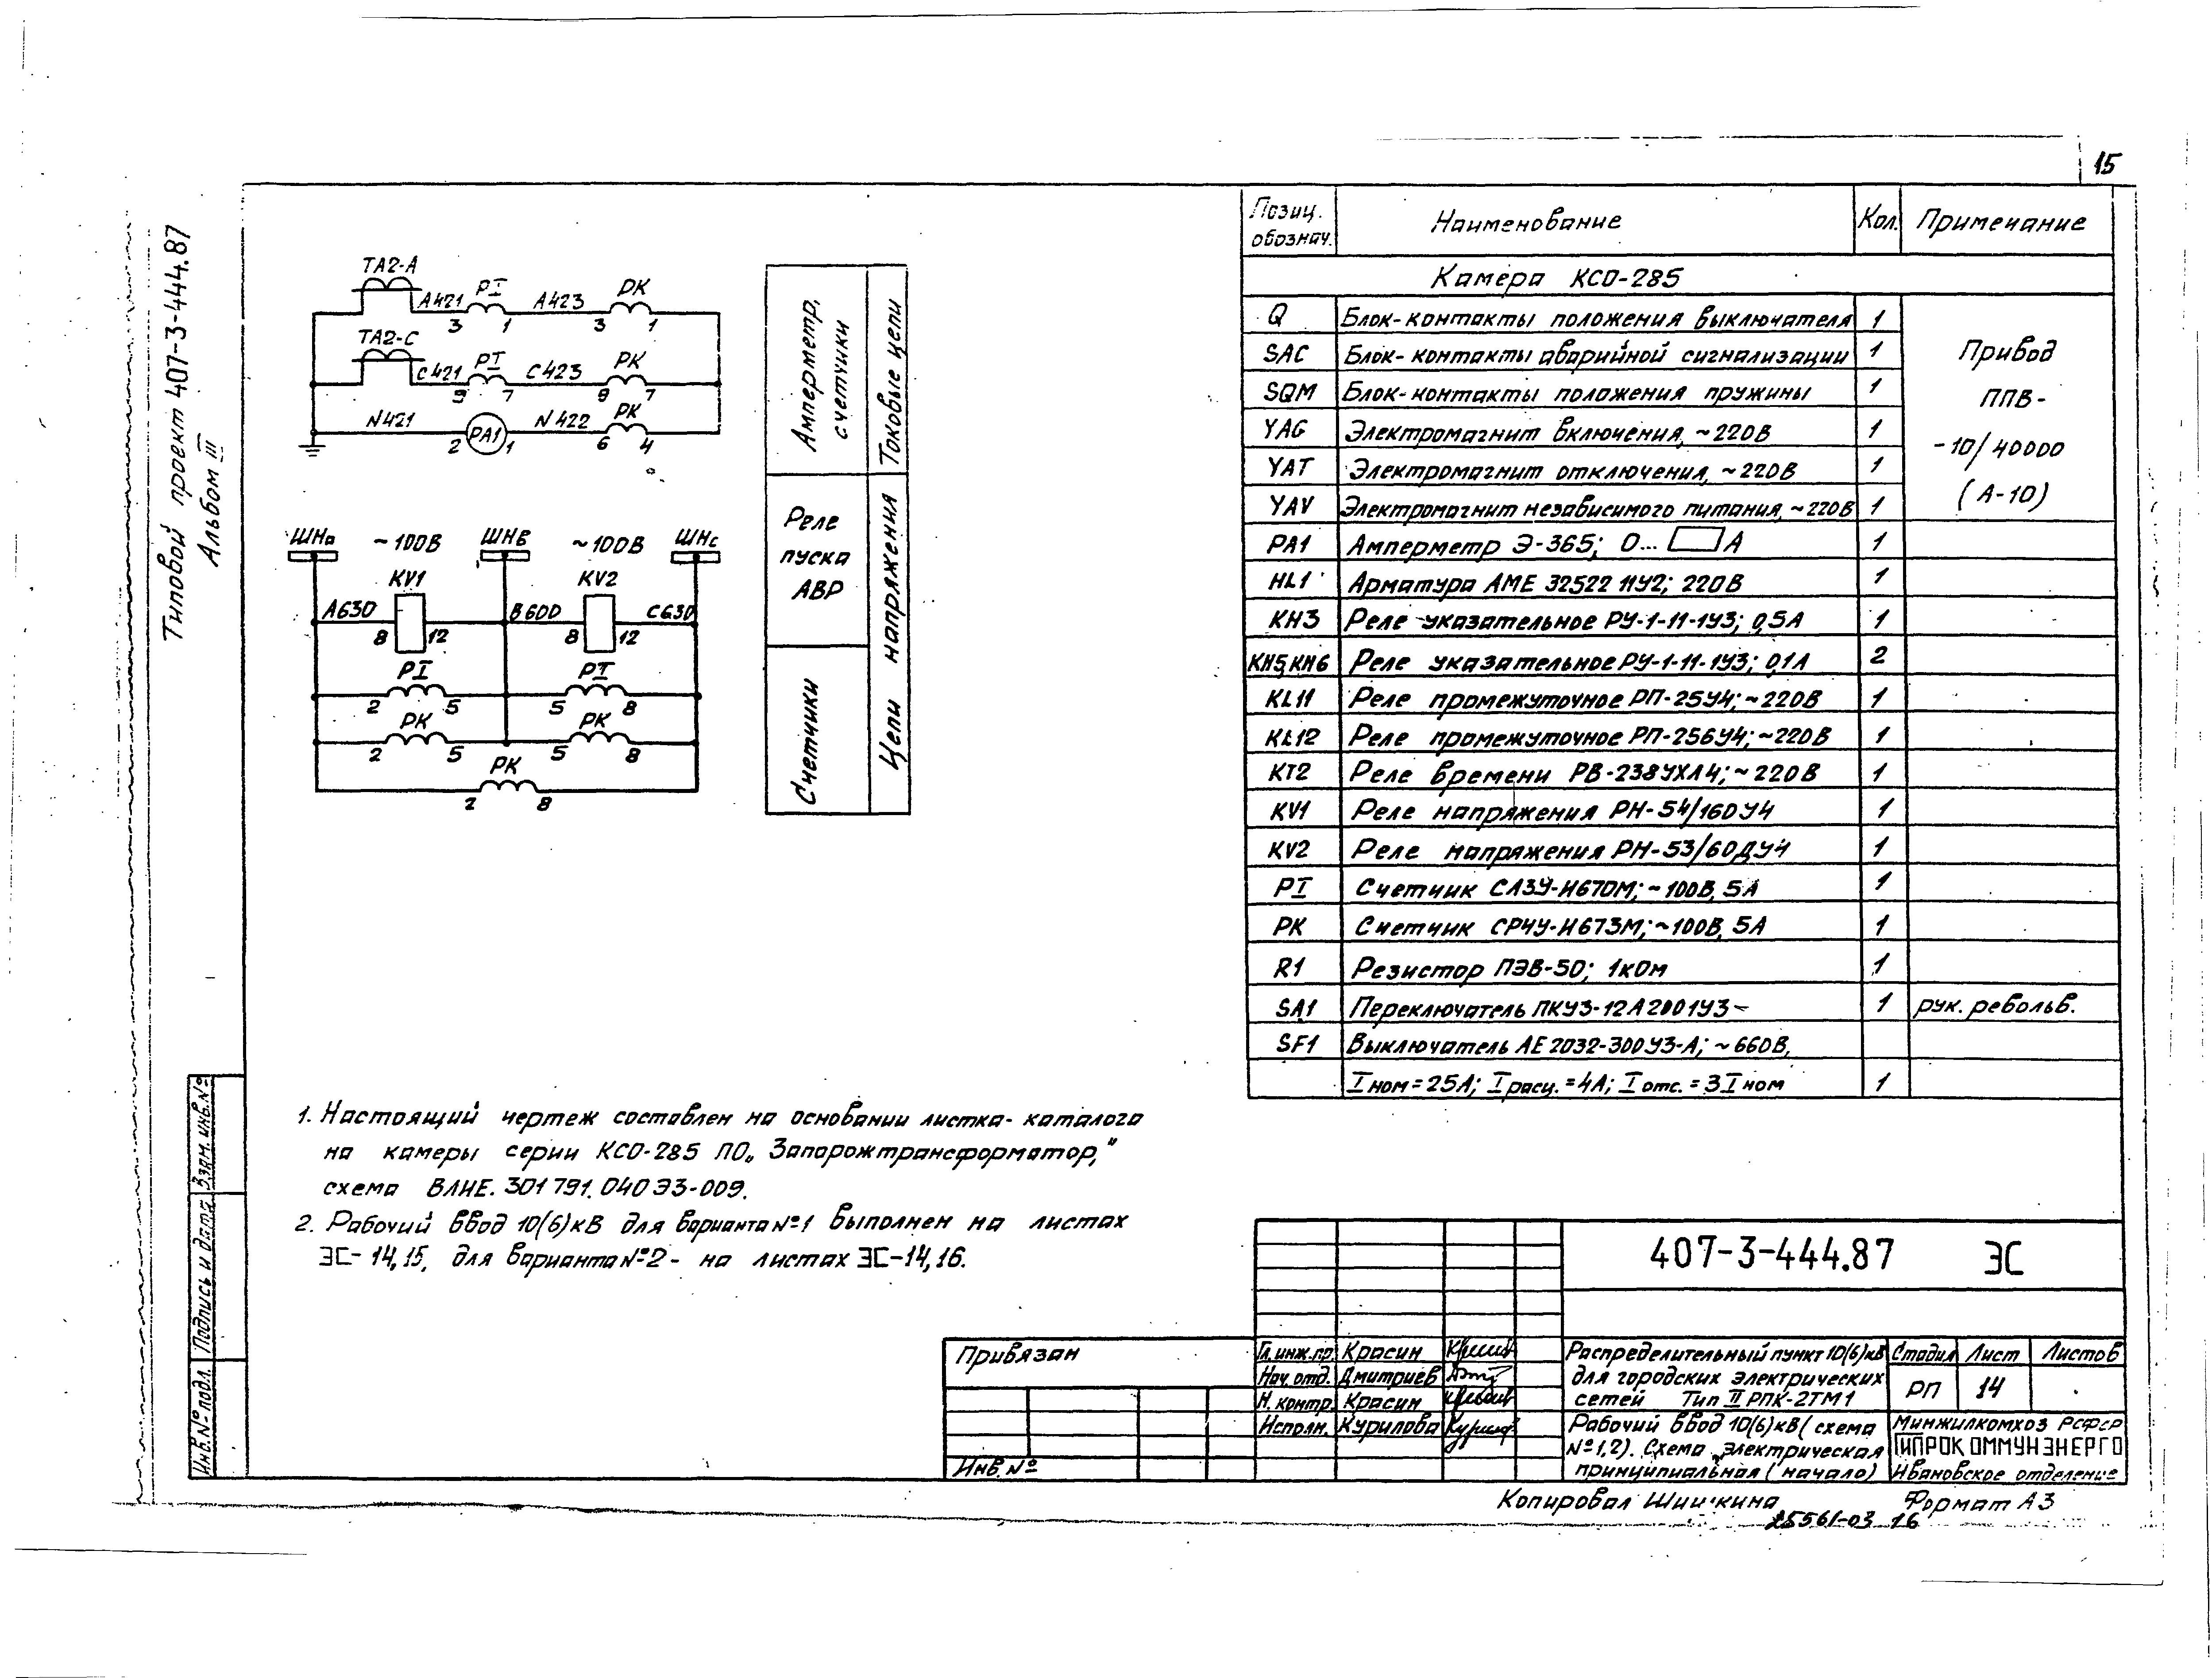 15
Типовой проект 407-3-444.87
Альбом III
ТА2-А
А421 PI А423 РК
3 1 3 1
ТА2-С
С421 PI С423 РК
9 7 9 7
N421 N422 РК
2 РА1 1 6 4
ШНа ~100В ШНв ~100В ШНс
KV1 KV2
А630 В600 С630
8 12 8 12
PI PI
2 5 5 8
РК РК
2 5 5 8
РК
2 8
Амперметр, счетчики
Токовые цепи
Реле
пуска
АВР
Счетчики
Цепи напряжения
Позиц. обознач. Наименование Кол. Примечание
Камера КСО-285
Q Блок-контакты положения выключателя 1
SAC Блок-контакты аварийной сигнализации 1
SQM Блок-контакты положения пружины 1
YAG Электромагнит включения, ~220В 1
YAT Электромагнит отключения, ~220В 1
YAV Электромагнит независимого питания, ~220В 1
Привод
ППВ-
-10/40000
(А-10)
PA1 Амперметр Э-365; 0... А 1
HL1 Арматура АМЕ 32522 11У2; 220В 1
КН3 Реле указательное РУ-1-11-1У3; 0,5А 1
КН5, КН6 Реле указательное РУ-1-11-1У3; 0,1А 2
KL11 Реле промежуточное РП-25У4; ~220В 1
KL12 Реле промежуточное РП-256У4; ~220В 1
КТ2 Реле времени РВ-238УХЛ4; ~220В 1
KV1 Реле напряжения РН-54/160У4 1
KV2 Реле напряжения РН-53/60ДУ4 1
PI Счетчик СА3У-И670М; ~100В, 5А 1
РК Счетчик СР4У-И673М; ~100В, 5А 1
R1 Резистор ПЭВ-50; 1кОм 1
SA1 Переключатель ПКУ3-12А2001У3- 1 рук. револьв.
SF1 Выключатель АЕ2032-300У3-А; ~660В,
Iном=25А; Iрасц.=4А; Iотс.=3Iном 1
1. Настоящий чертеж составлен на основании листка-каталога
на камеры серии КСО-285 ПО „Запорожтрансформатор,"
схема ВЛИЕ.301791.040Э3-009.
2. Рабочий ввод 10(6)кВ для варианта №1 выполнен на листах
ЭС-14,15, для варианта №2 - на листах ЭС-14,16.
Взам. инв. №
Подпись и дата
Инв. № подл.
Привязан
Инв. №
407-3-444.87 ЭС
Гл. инж. пр. Красин
Нач. отд. Дмитриев
Н. контр. Красин
Исполн. Курилова
Распределительный пункт 10(6)кВ
для городских электрических
сетей Тип II РПК-2ТМ1
Стадия Лист Листов
РП 14
Рабочий ввод 10(6)кВ (схема
№1,2). Схема электрическая
принципиальная (начало)
Минжилкомхоз РСФСР
ГИПРОКОММУНЭНЕРГО
Ивановское отделение
Копировал Шишкина Формат А3
25561-03 16